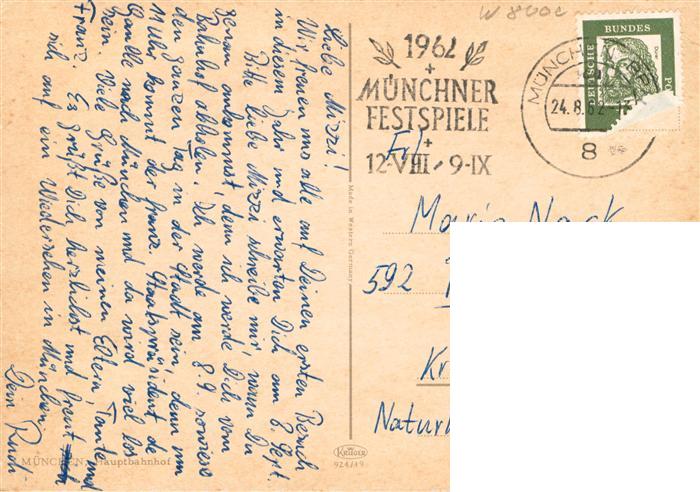 Liebe Mizzi!
Wir freuen uns alle auf Deinen ersten Besuch
in diesem Jahr und erwarten Dich am 8. Sept.
Bitte liebe Mizzi schreibe mir, wann Du
genau ankommst, denn ich werde Dich vom
Bahnhof abholen. Ich werde am 8.9. sowieso
den ganzen Tag in der Stadt sein, denn um
11 Uhr kommt der franz. Staatspräsident de
Gaulle nach München und da wird viel los
sein. Viele Grüße von meinen Eltern, Tante und
Franz. Es grüßt Dich herzlichst und freut
sich auf ein Wiedersehen in München
Dein
MÜNCHEN, Hauptbahnhof
Made in Western Germany
KRÜGER
921/19
W 800c
1962
+
MÜNCHNER
FESTSPIELE
+
12·VIII - 9·IX
MÜNCH
24.8.62
8
BUNDES
Frl.
Maria Nack
592
Kr
Naturh